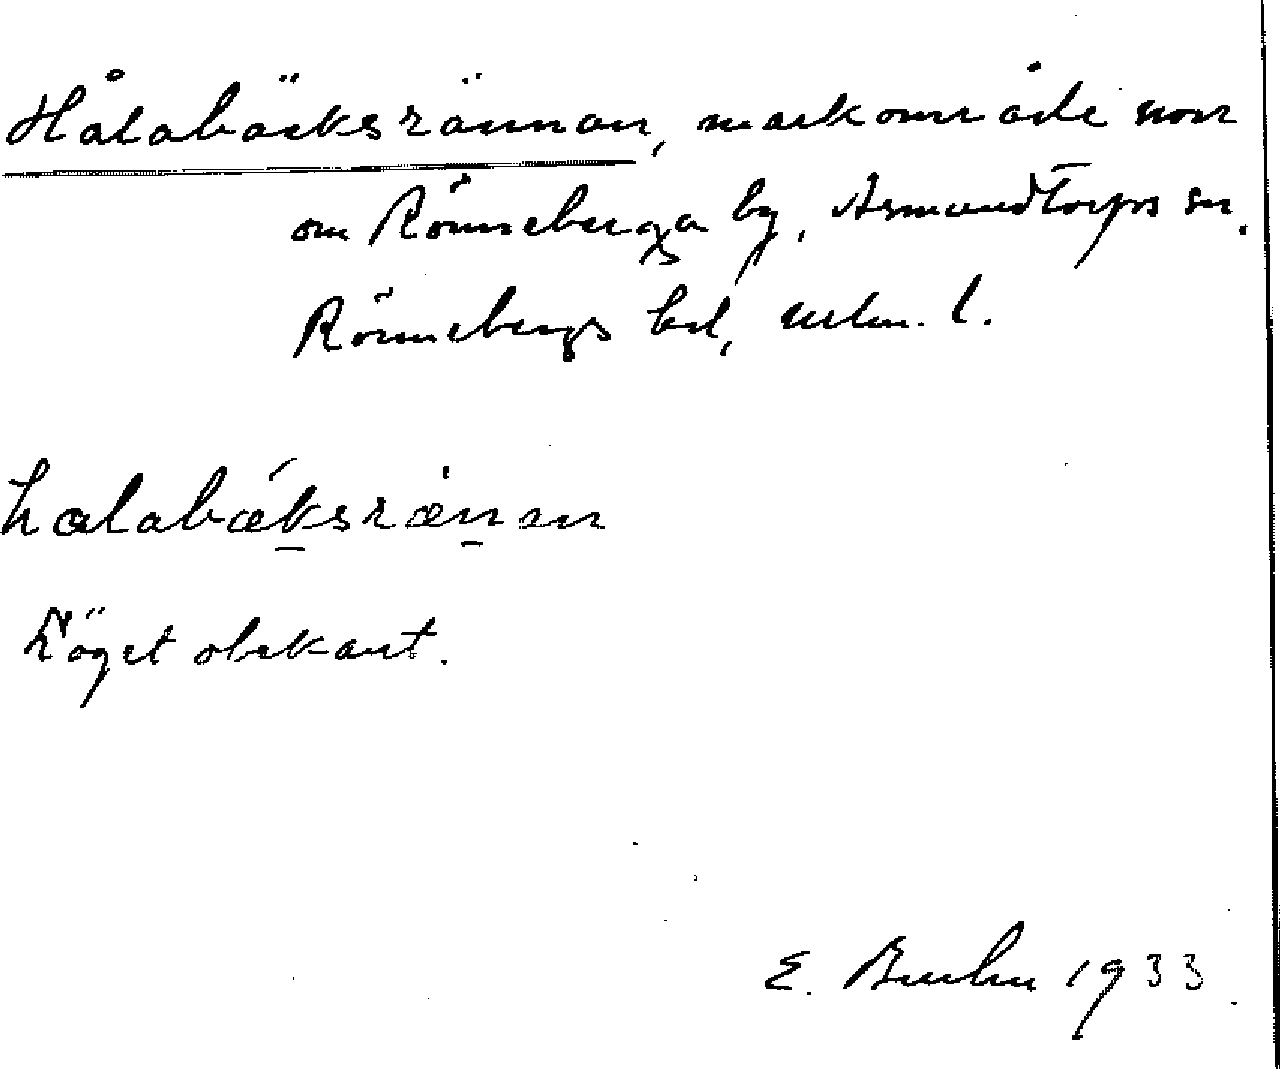 Hålabäcksrännan, markområde norr
om Rönneberga by, Asmundtorps sn.
Rönnebergs hd, Malm. l.
hålabæ̀ksrænan
Läget obekant.
E. Bruhn 1933